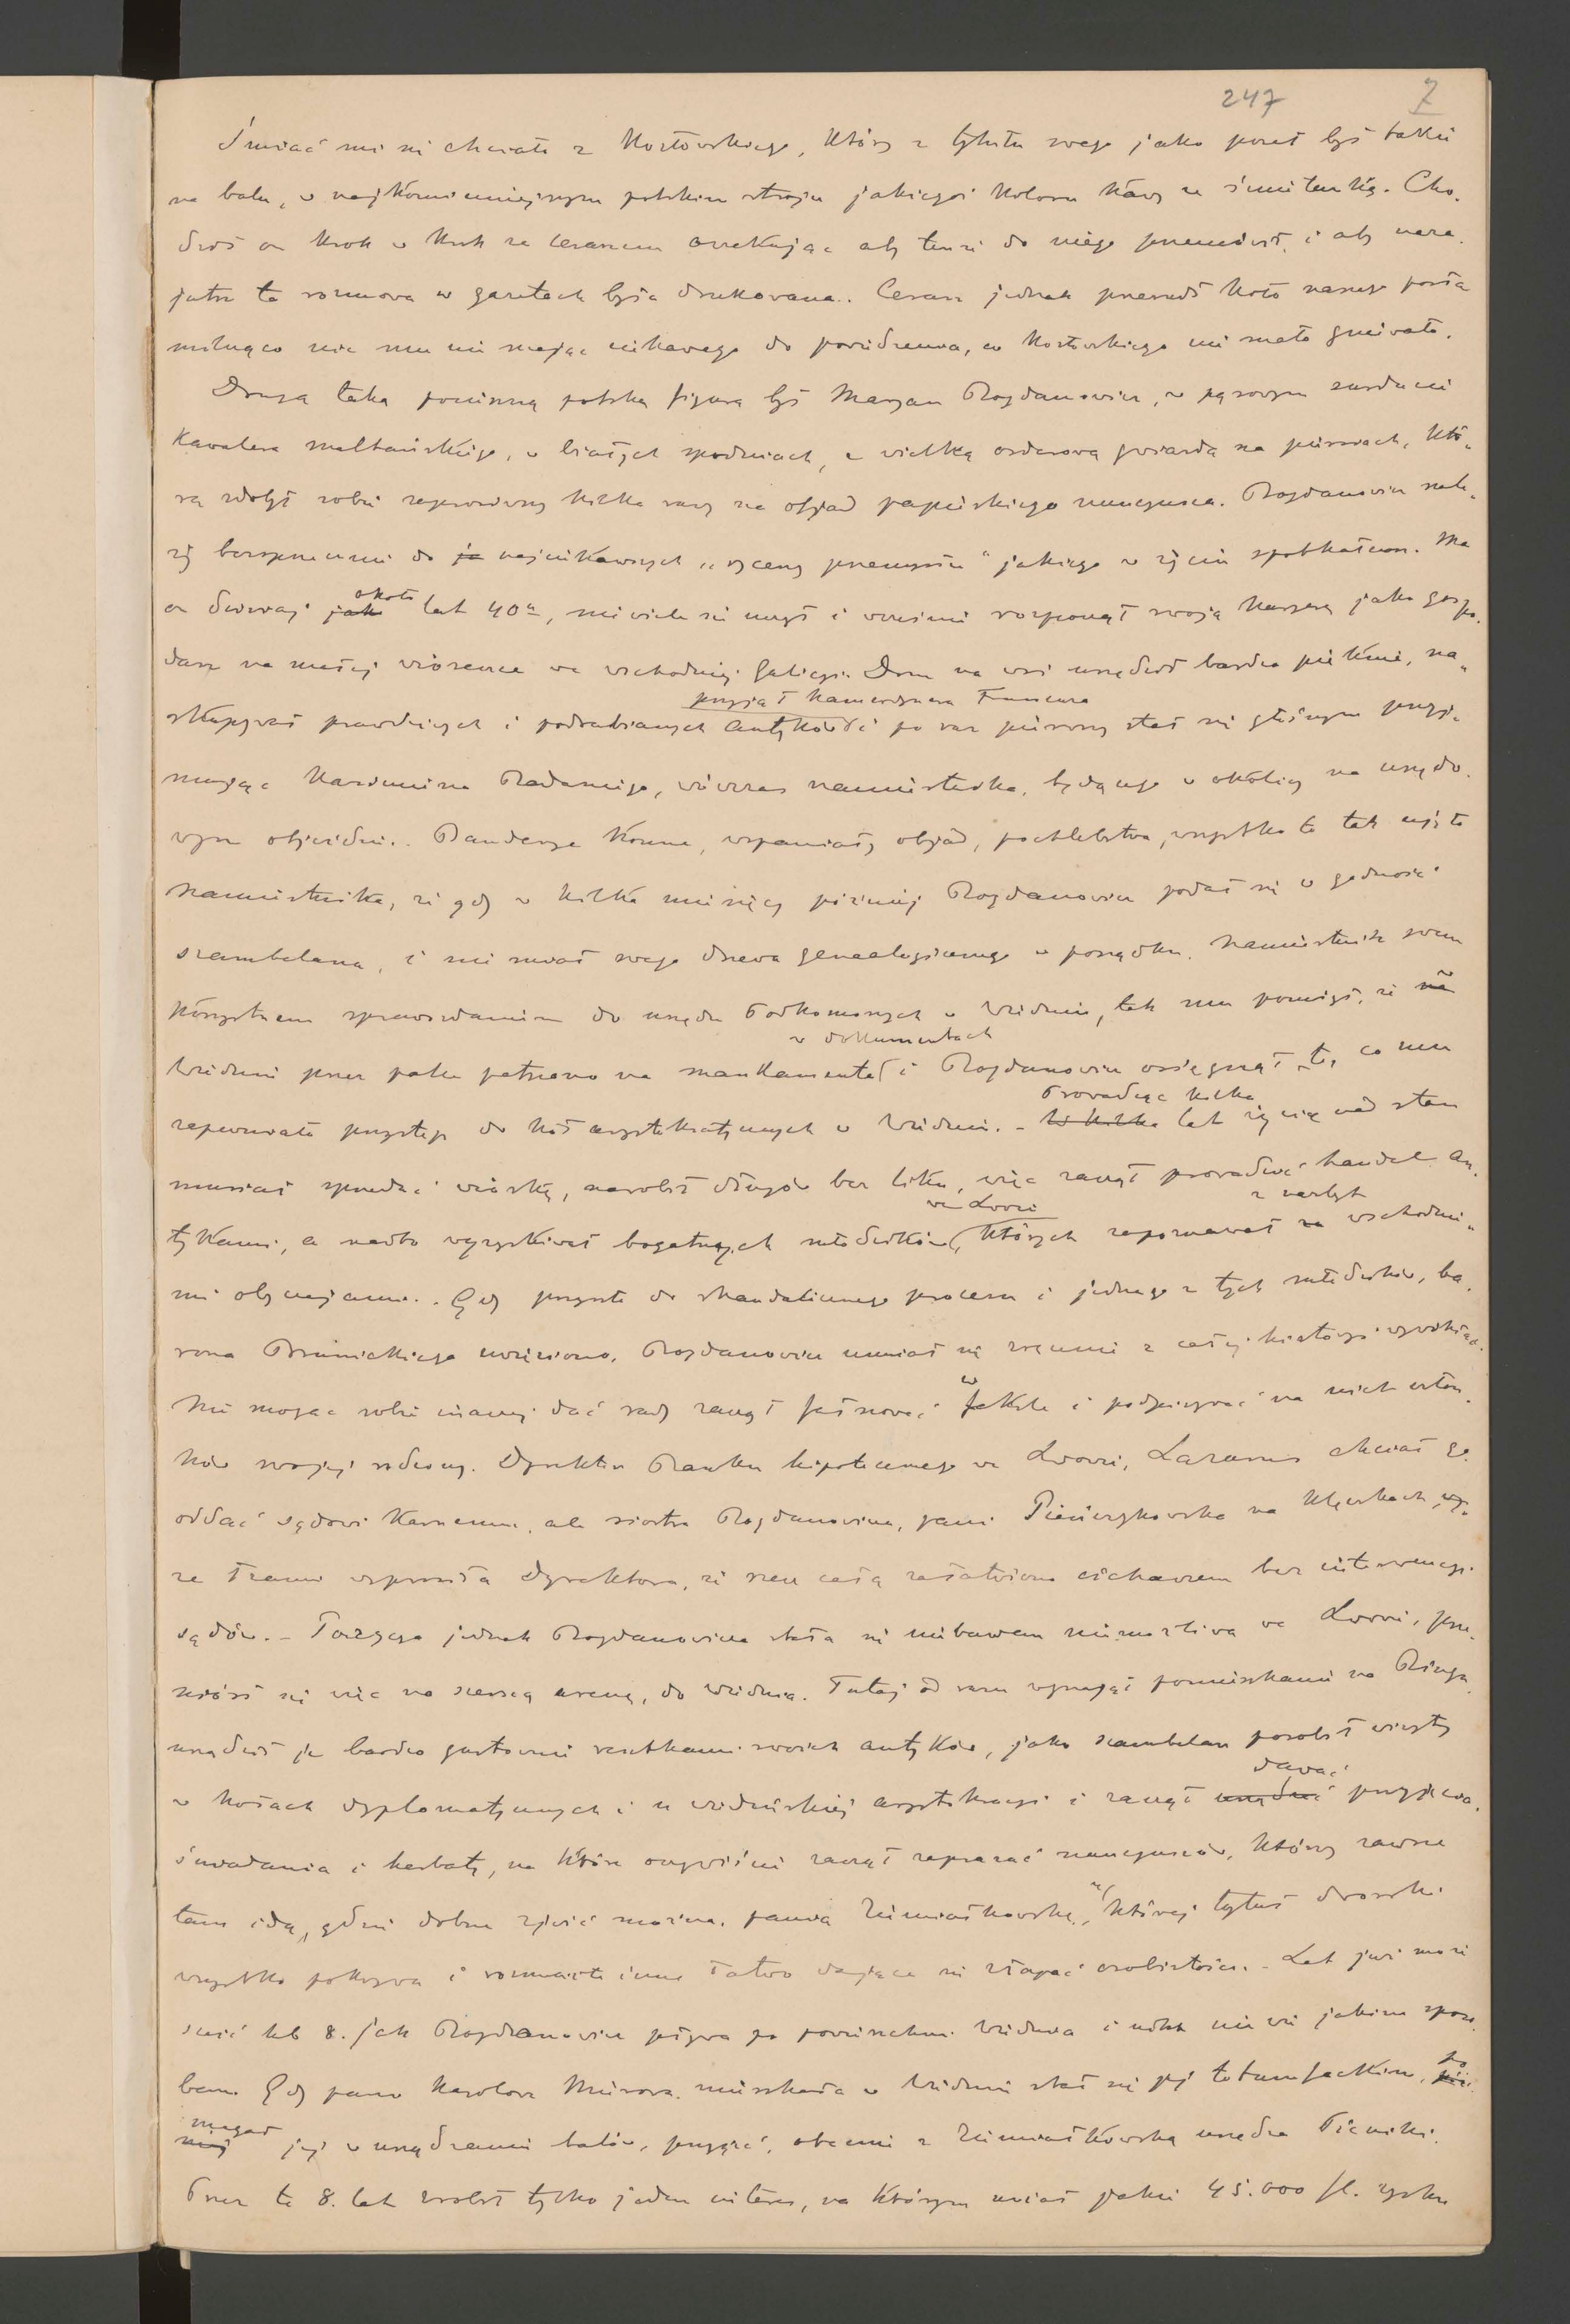 247 7
Śmiać mi się chciało z Kozłowskiego, który z tytułu swego jako poseł był także
na balu, w najkomiczniejszym polskim stroju jakiegoś koloru kawy ze śmietanką. Cho-
dził on krok w krok za cesarzem oczekując aby tenże do niego przemówił, i aby naza-
jutrz ta rozmowa w gazetach była drukowana. Cesarz jednak przeszedł koło naszego posła
milcząco nic mu nie mając ciekawego do powiedzenia, co Kozłowskiego nie mało gniewało.
Drugą taką pocieszną polską figurą był Maryan Bogdanowicz, w pąsowym surducie
Kawalera maltańskiego, w białych spodniach, z wielką orderową gwiazdą na piersiach, któ-
rą zdobył sobie zaprosiwszy kilka razy na objad papieskiego nuncyusza. Bogdanowicz nale-
ży bezsprzecznie do najciekawszych „rycerzy przemysłu" jakiego w życiu spotkałem. Ma
on dzisiaj około lat 40u, nie wiele się uczył i wcześnie rozpoczął swoją karyerę jako gospo-
darz na małej wiosence we wschodniej Galicyi. Dom na wsi urządził bardzo pięknie, na-
przyjął kamerdynera Francuza
skupywał prawdziwych i podrabianych antyków i po raz pierwszy stał się głośnym przyj-
mując Kazimirza Badeniego, wówczas namiestnika, będącego w okolicy na urzędo-
wym objeździe. Banderye konne, wspaniały objad, pochlebstwa, wszystko to tak ujęło
namiestnika, że gdy w kilka miesięcy później Bogdanowicz podał się o godność
szambelana, i nie miał swego drzewa genealogicznego w porządku, namiestnik swem
korzystnem sprawozdaniem do urzędu Podkomorzych w Wiedniu, tak mu pomógł, że w
w dokumentach
Wiedniu przez palce patrzano na mankamenta i Bogdanowicz osiągnął to, co mu
Prowadząc kilka
zapewniało przystęp do kół arystokratycznych w Wiedniu. - lat życie nad stan
musiał sprzedać wioskę, narobił długów bez liku, więc zaczął prowadzić handel an-
we Lwowie z zasłyn
tykami, a nadto wyzyskiwał bogatszych młodzików, których zapoznawał wschodnie-
mi obyczajami. Gdy przyszło do skandalicznego procesu i jednego z tych młodzików, ba-
rona Brunickiego uwięziono, Bogdanowicz umiał się zręcznie z całej historyi wywikłać.
Nie mogąc sobie inaczej dać rady zaczął fałszować weksle i podpisywać na nich człon-
ków swojej rodziny. Dyrektor Banku hipotecznego we Lwowie, Lazarus chciał go
oddać sądowi karnemu, ale siostra Bogdanowicza, pani Pieńczykowska na klęczkach
ze łzami uprosiła dyrektora, że rzecz całą załatwiono cichaczem bez interwencyi
sądów. - Pozycya jednak Bogdanowicza stała się niebawem niemożliwą we Lwowie, prze-
niósł się więc na szerszą arenę, do Wiednia. Tutaj od razu wynajął pomieszkanie na Ringu,
urządził je bardzo gustownie resztkami swoich antyków, jako szambelan porobił wizyty
dawać
w kołach dyplomatycznych i u wiedeńskiej arystokracyi i zaczął przyjęcia,
śniadania i herbaty, na które oczywiście zaczął zapraszać nuncyuszów, którzy zawsze
tam idą, gdzie dobrze zjeść można, panią Ziemiałkowską, której tytuł dworski
wszystko pokrywa i rozmaite inne łatwo dające się złapać osobistości. - Lat już może
sześć lub 8. jak Bogdanowicz pływa po powierzchni Wiednia i nikt nie wie jakim sposo-
bem. Gdy pani Karolowa Mierowa mieszkała w Wiedniu stał się jej totumfackim, po
magał jej w urządzaniu balów, przyjęć, obecnie z Ziemiałkowską urządza Pikniki.
Przez te 8. lat zrobił tylko jeden interes, na którym miał jakie 45.000 fl. zysku